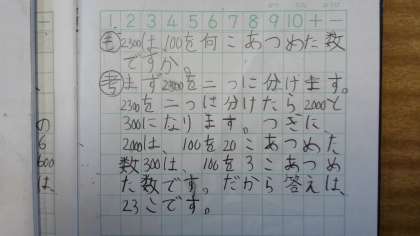 1 2 3 4 5 6 7 8 9 10 十 一
も 2300は、100を何こあつめた数
ですか。
考 まず2300を二つに分けます。
2300を二つに分けたら2000と
300になります。つぎに、
2000は、100を20こあつめた
数300は、100を3こあつめ
た数です。だから答えは、
23こです。
の
6
600
は